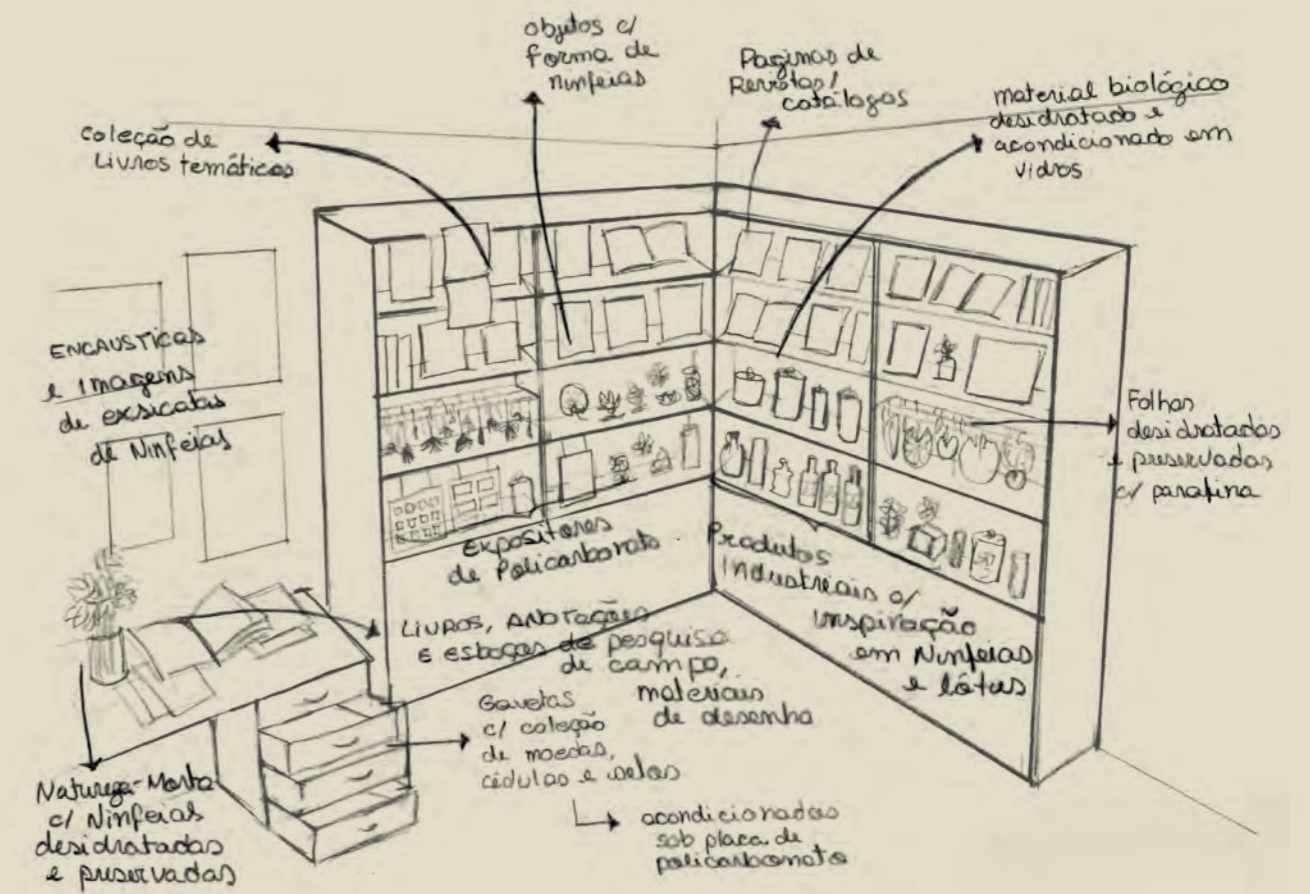 objetos c/
forma de
ninfeias
Paginas de
Revistas/
catálogos
material biológico
desidratado e
acondicionado em
vidros
coleção de
Livros temáticos
ENCAUSTICAS
e Imagens
de exsicatas
de Ninfeias
Folhas
desidratadas
e preservadas
c/ parafina
Expositores
de Policarbonato
Produtos
Industriais c/
inspiração
em Ninfeias
e lótus
LIVROS, ANOTAÇÕES
E esboços de pesquisa
de campo,
materiais
de desenho
Gavetas
c/ coleção
de moedas,
cédulas e selos
acondicionadas
sob placa de
policarbonato
Natureza-Morta
c/ Ninfeias
desidratadas
e preservadas